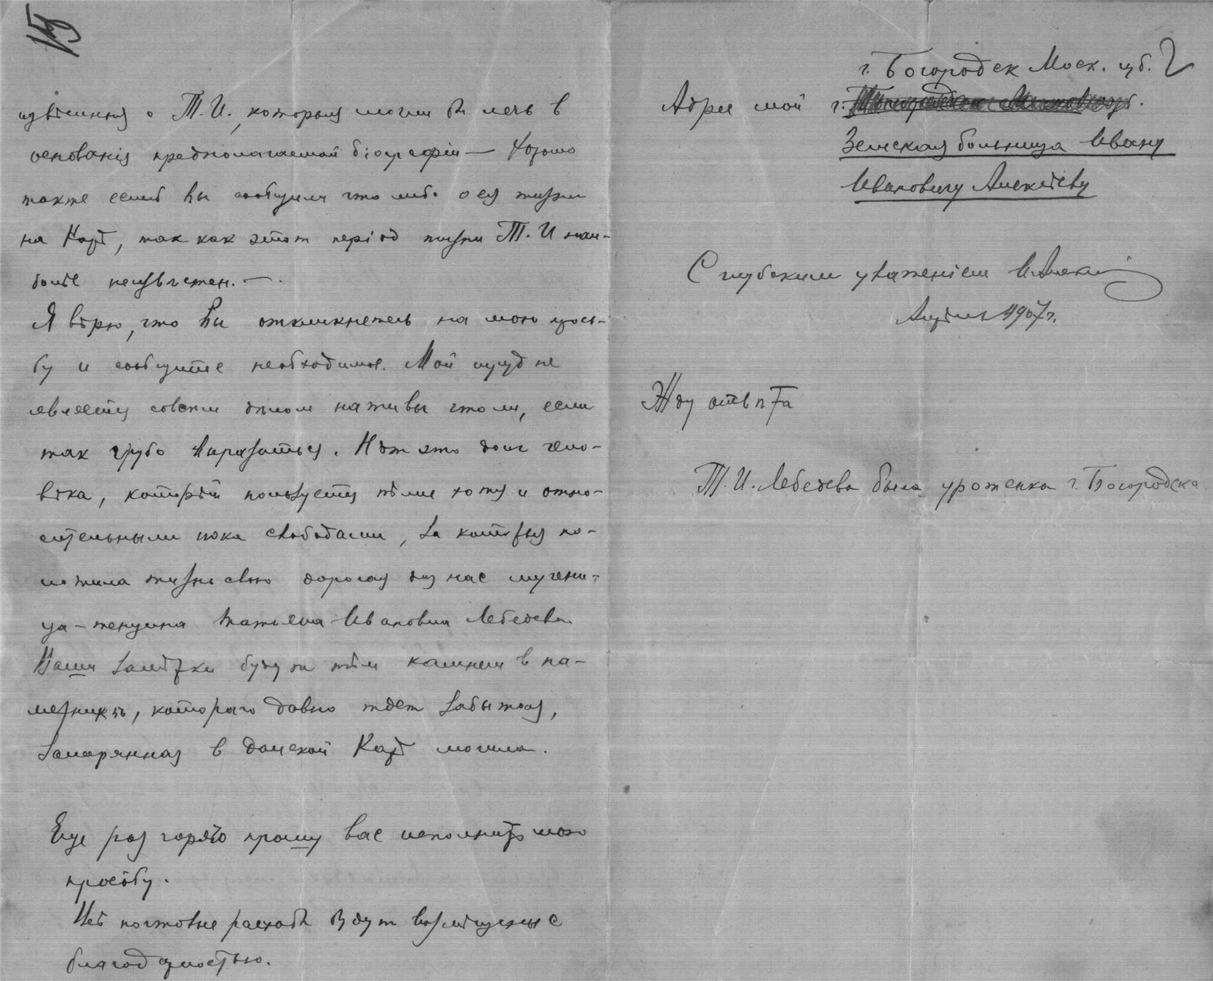 15
извѣстия о Т. И., которыя могли бы лечь в
основанія предполагаемой біографіи — Хорошо
также еслиб Вы сообщили что либо о ея жизни
на Карѣ, так как этот період жизни Т. И наи-
болѣе неизвѣстен. —
Я вѣрю, что Вы откликнетесь на мою прось-
бу и сообщите необходимое. Мой труд не
является совсем дѣлом наживы что ли, если
так грубо выразиться. Нѣт это долг чело-
вѣка, который пользуется тѣми хотя и относ-
ительными пока свободами, за которыя по-
ложила жизнь свою дорогая для нас мучени-
ца-женщина Татьяна Ивановна Лебедева.
Ваши замѣтки будут тѣм камнем в па-
мятникѣ, котораго давно ждет забытая,
затерянная в далекой Карѣ могила.
Еще раз горячо прошу вас исполнить мою
просьбу.
Всѣ почтовые расходы будут возмѣщены с
благодарностью.
2
г. Богородск Моск. губ.
Адрес мой г.
Земская больница Ивану
Ивановичу Алексѣеву
С глубоким уваженіем И Алек
Апрѣль 1907 г.
Жду отвѣта
Т. И. Лебедева была уроженка г. Богородска